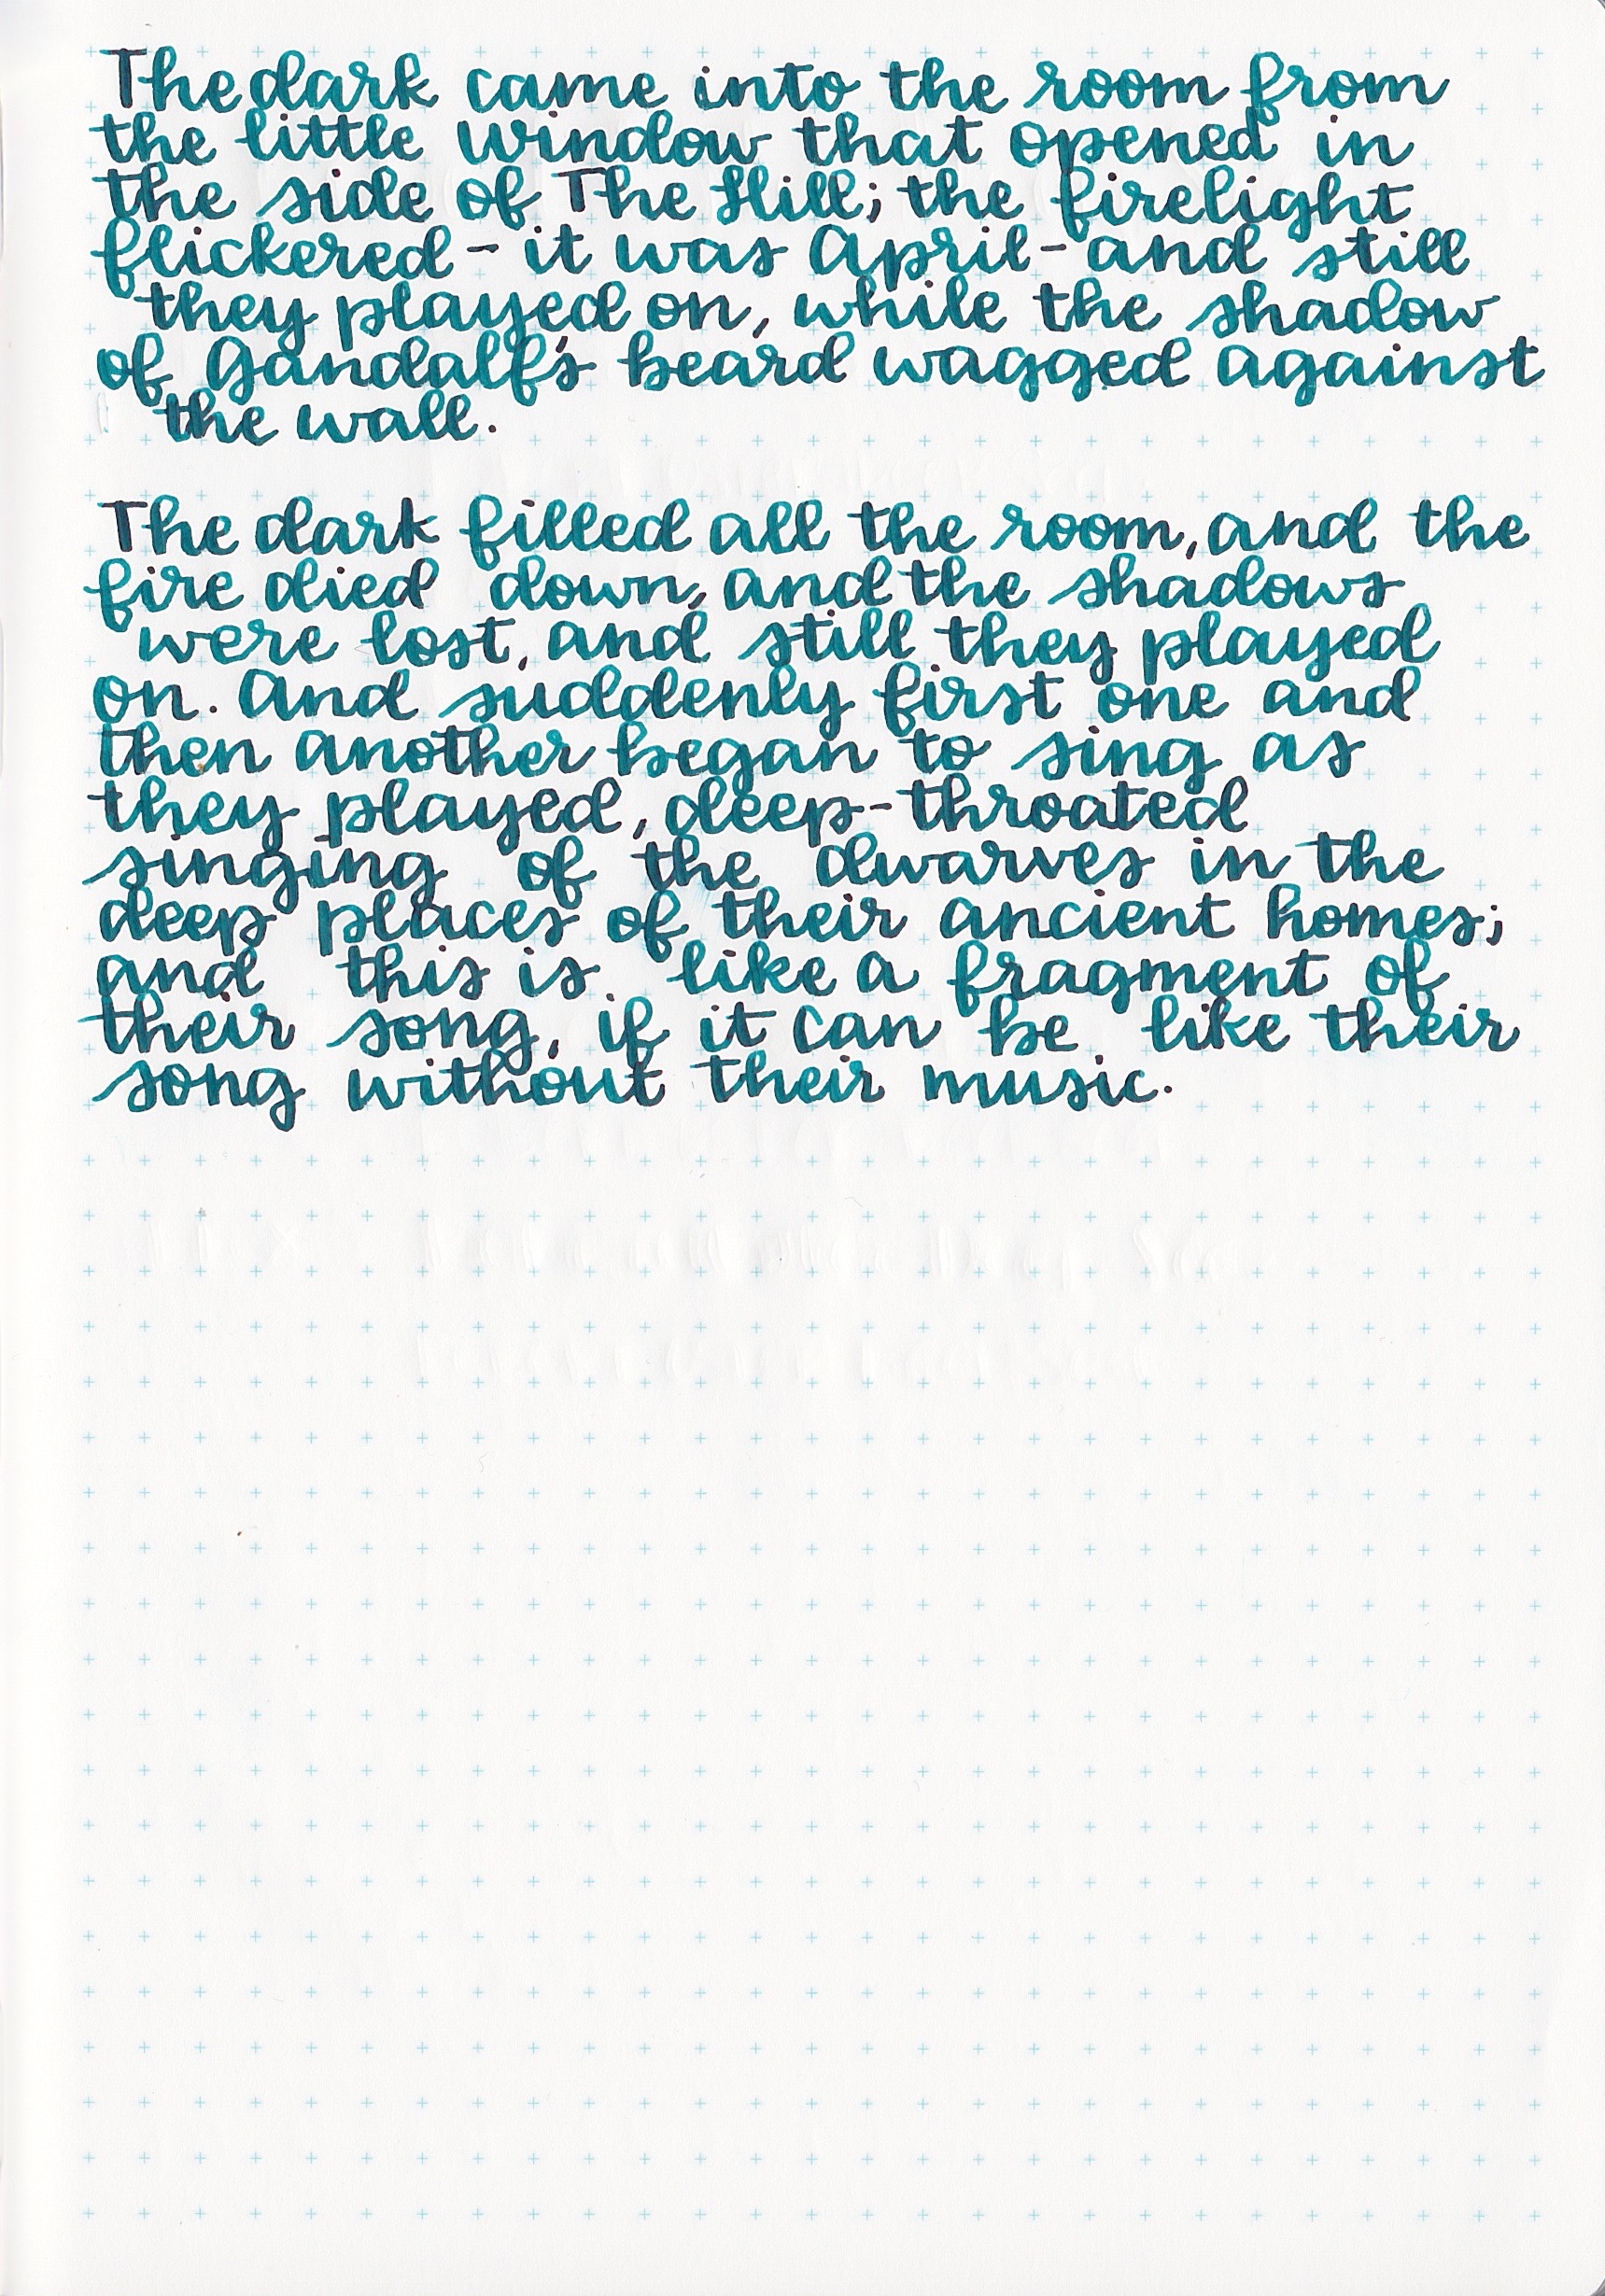 The dark came into the room from
the little window that opened in
the side of The Hill; the firelight
flickered - it was April - and still
they played on, while the shadow
of Gandalf's beard wagged against
the wall.
The dark filled all the room, and the
fire died down, and the shadows
were lost, and still they played
on. And suddenly first one and
then another began to sing as
they played, deep-throated
singing of the dwarves in the
deep places of their ancient homes;
and this is like a fragment of
their song, if it can be like their
song without their music.